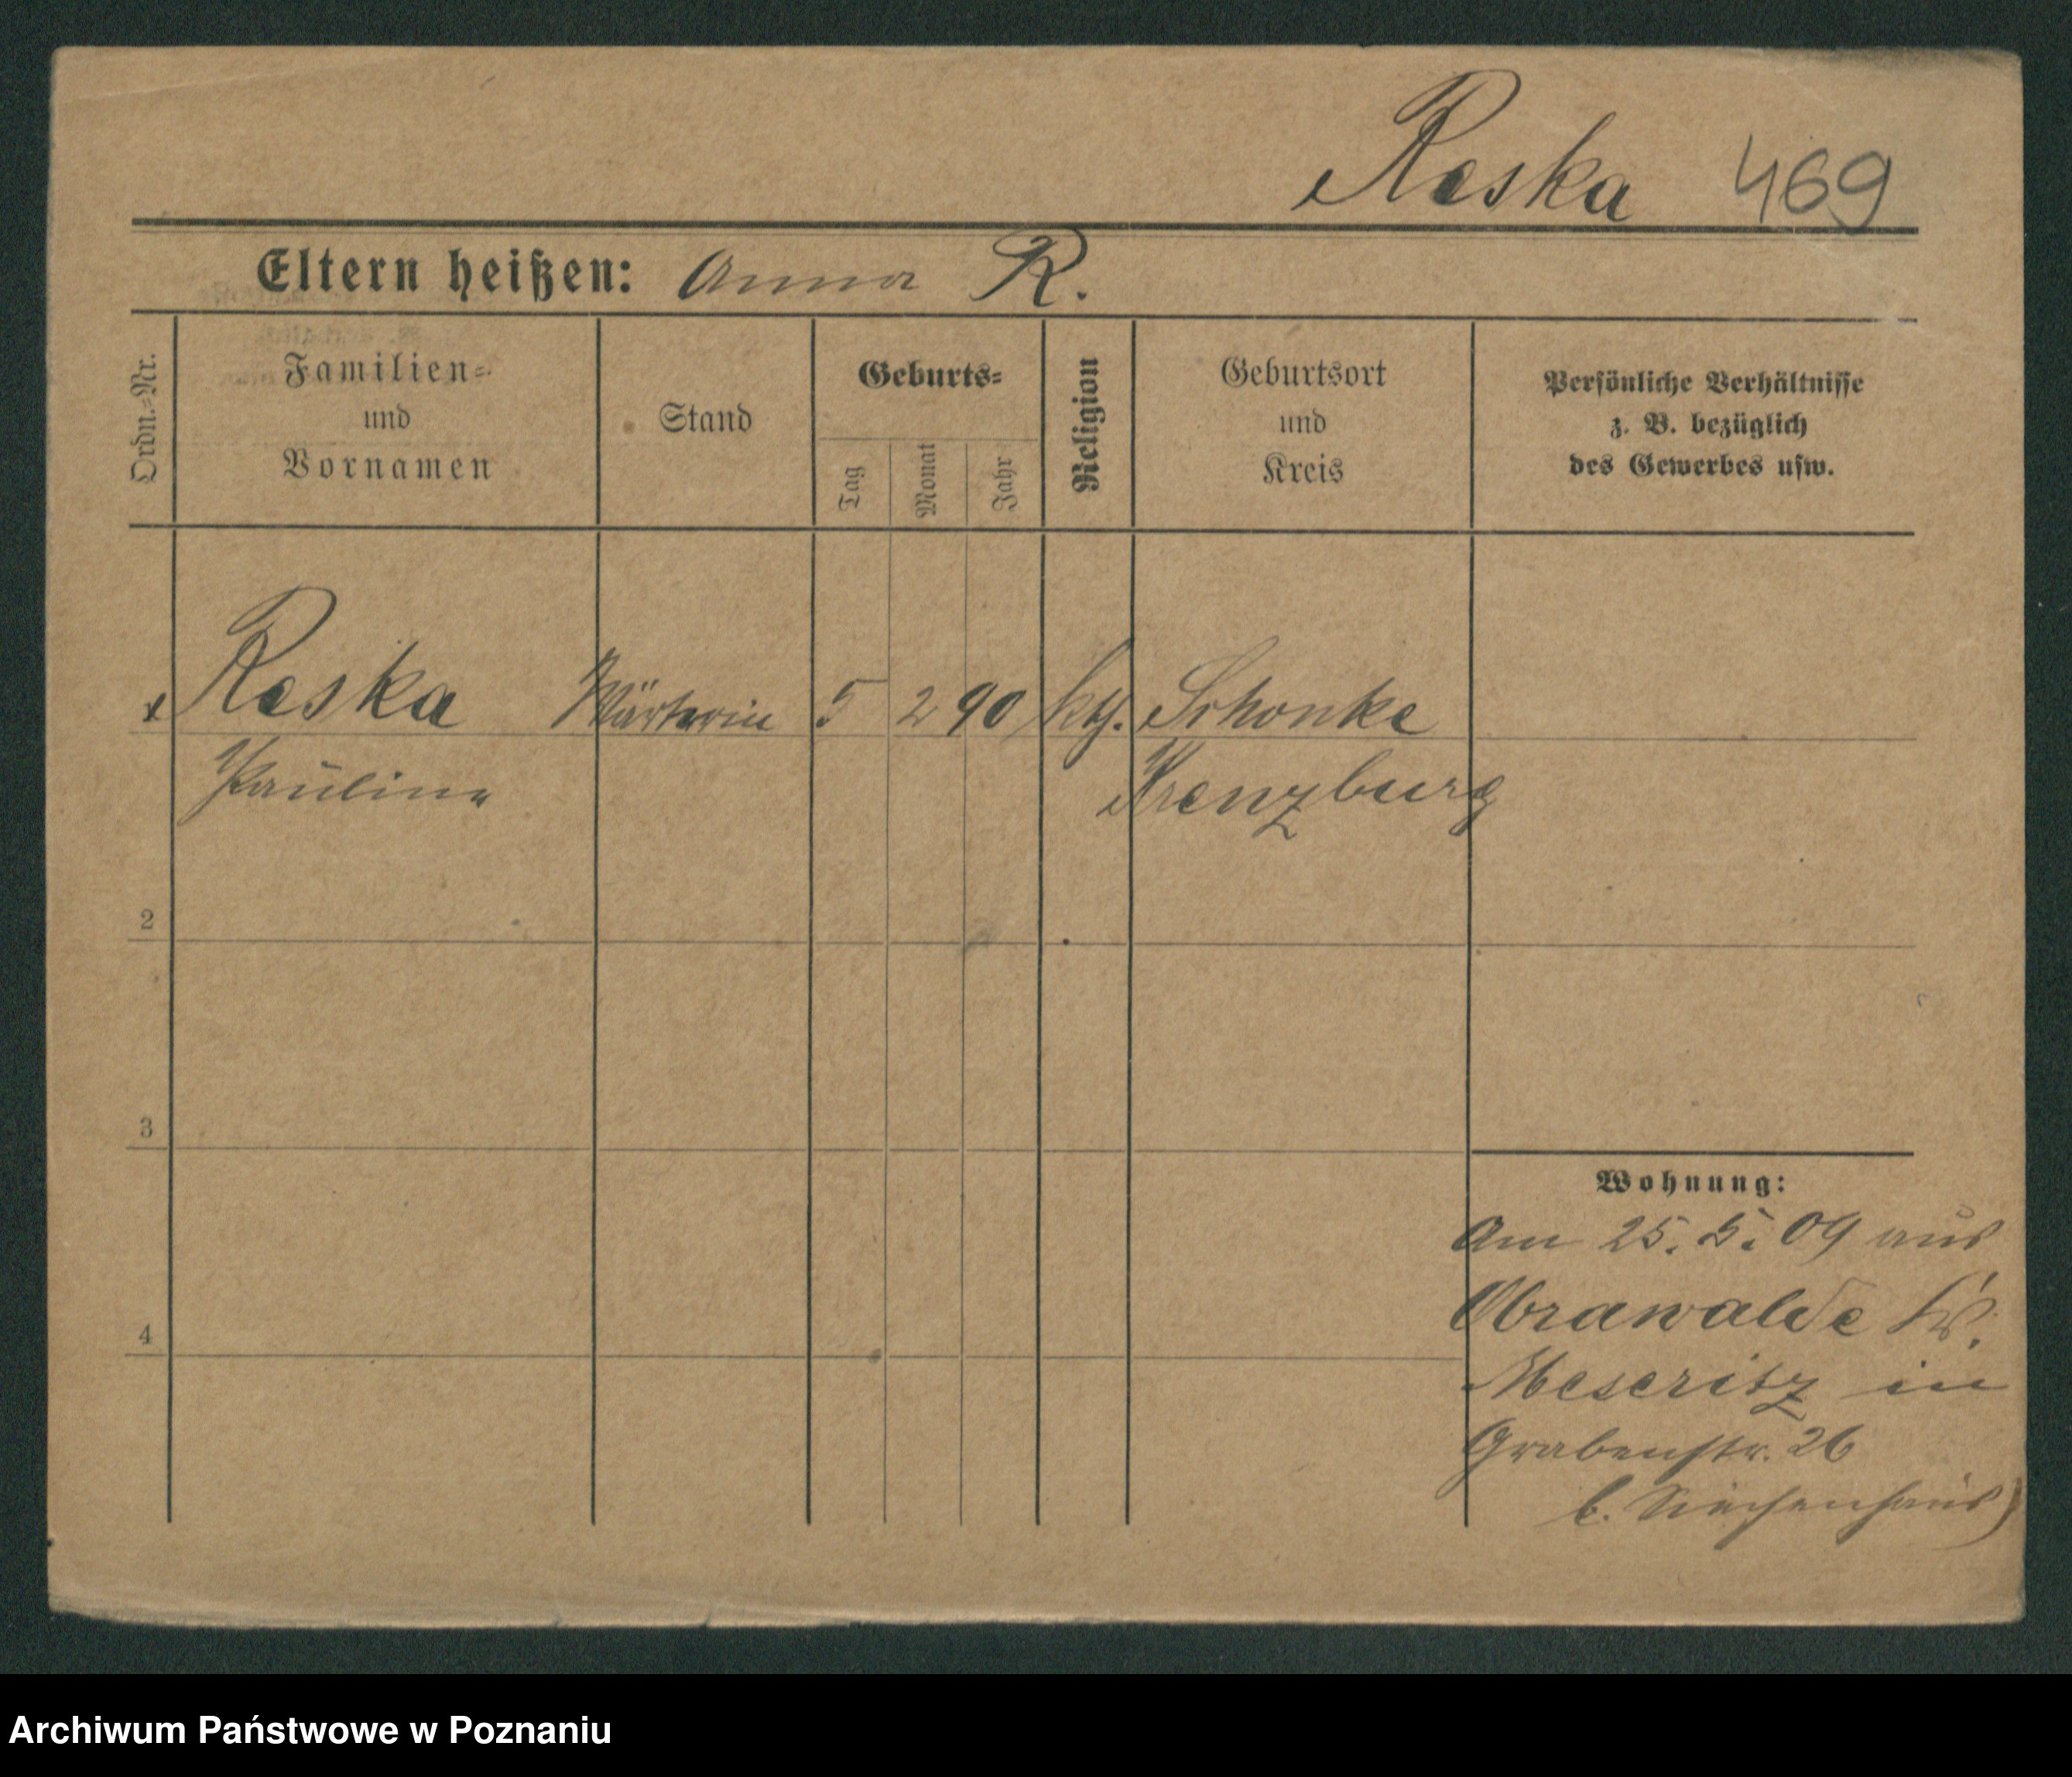 Reska 469
Eltern heißen: Anna R.
Ordn.-Nr.
Familien-
und
Vornamen
Stand
Geburts-
Tag
Monat
Jahr
Religion
Geburtsort
und
Kreis
Persönliche Verhältnisse
z. B. bezüglich
des Gewerbes usw.
Reska Wärterin 5 2 90 kth. Schonke
Pauline Kreuzburg
2
3
4
Wohnung:
Am 25. 5. 09 aus
Obrawalde Kr.
Meseritz in
Grabenstr. 26
b. Siechenhaus)
Archiwum Państwowe w Poznaniu